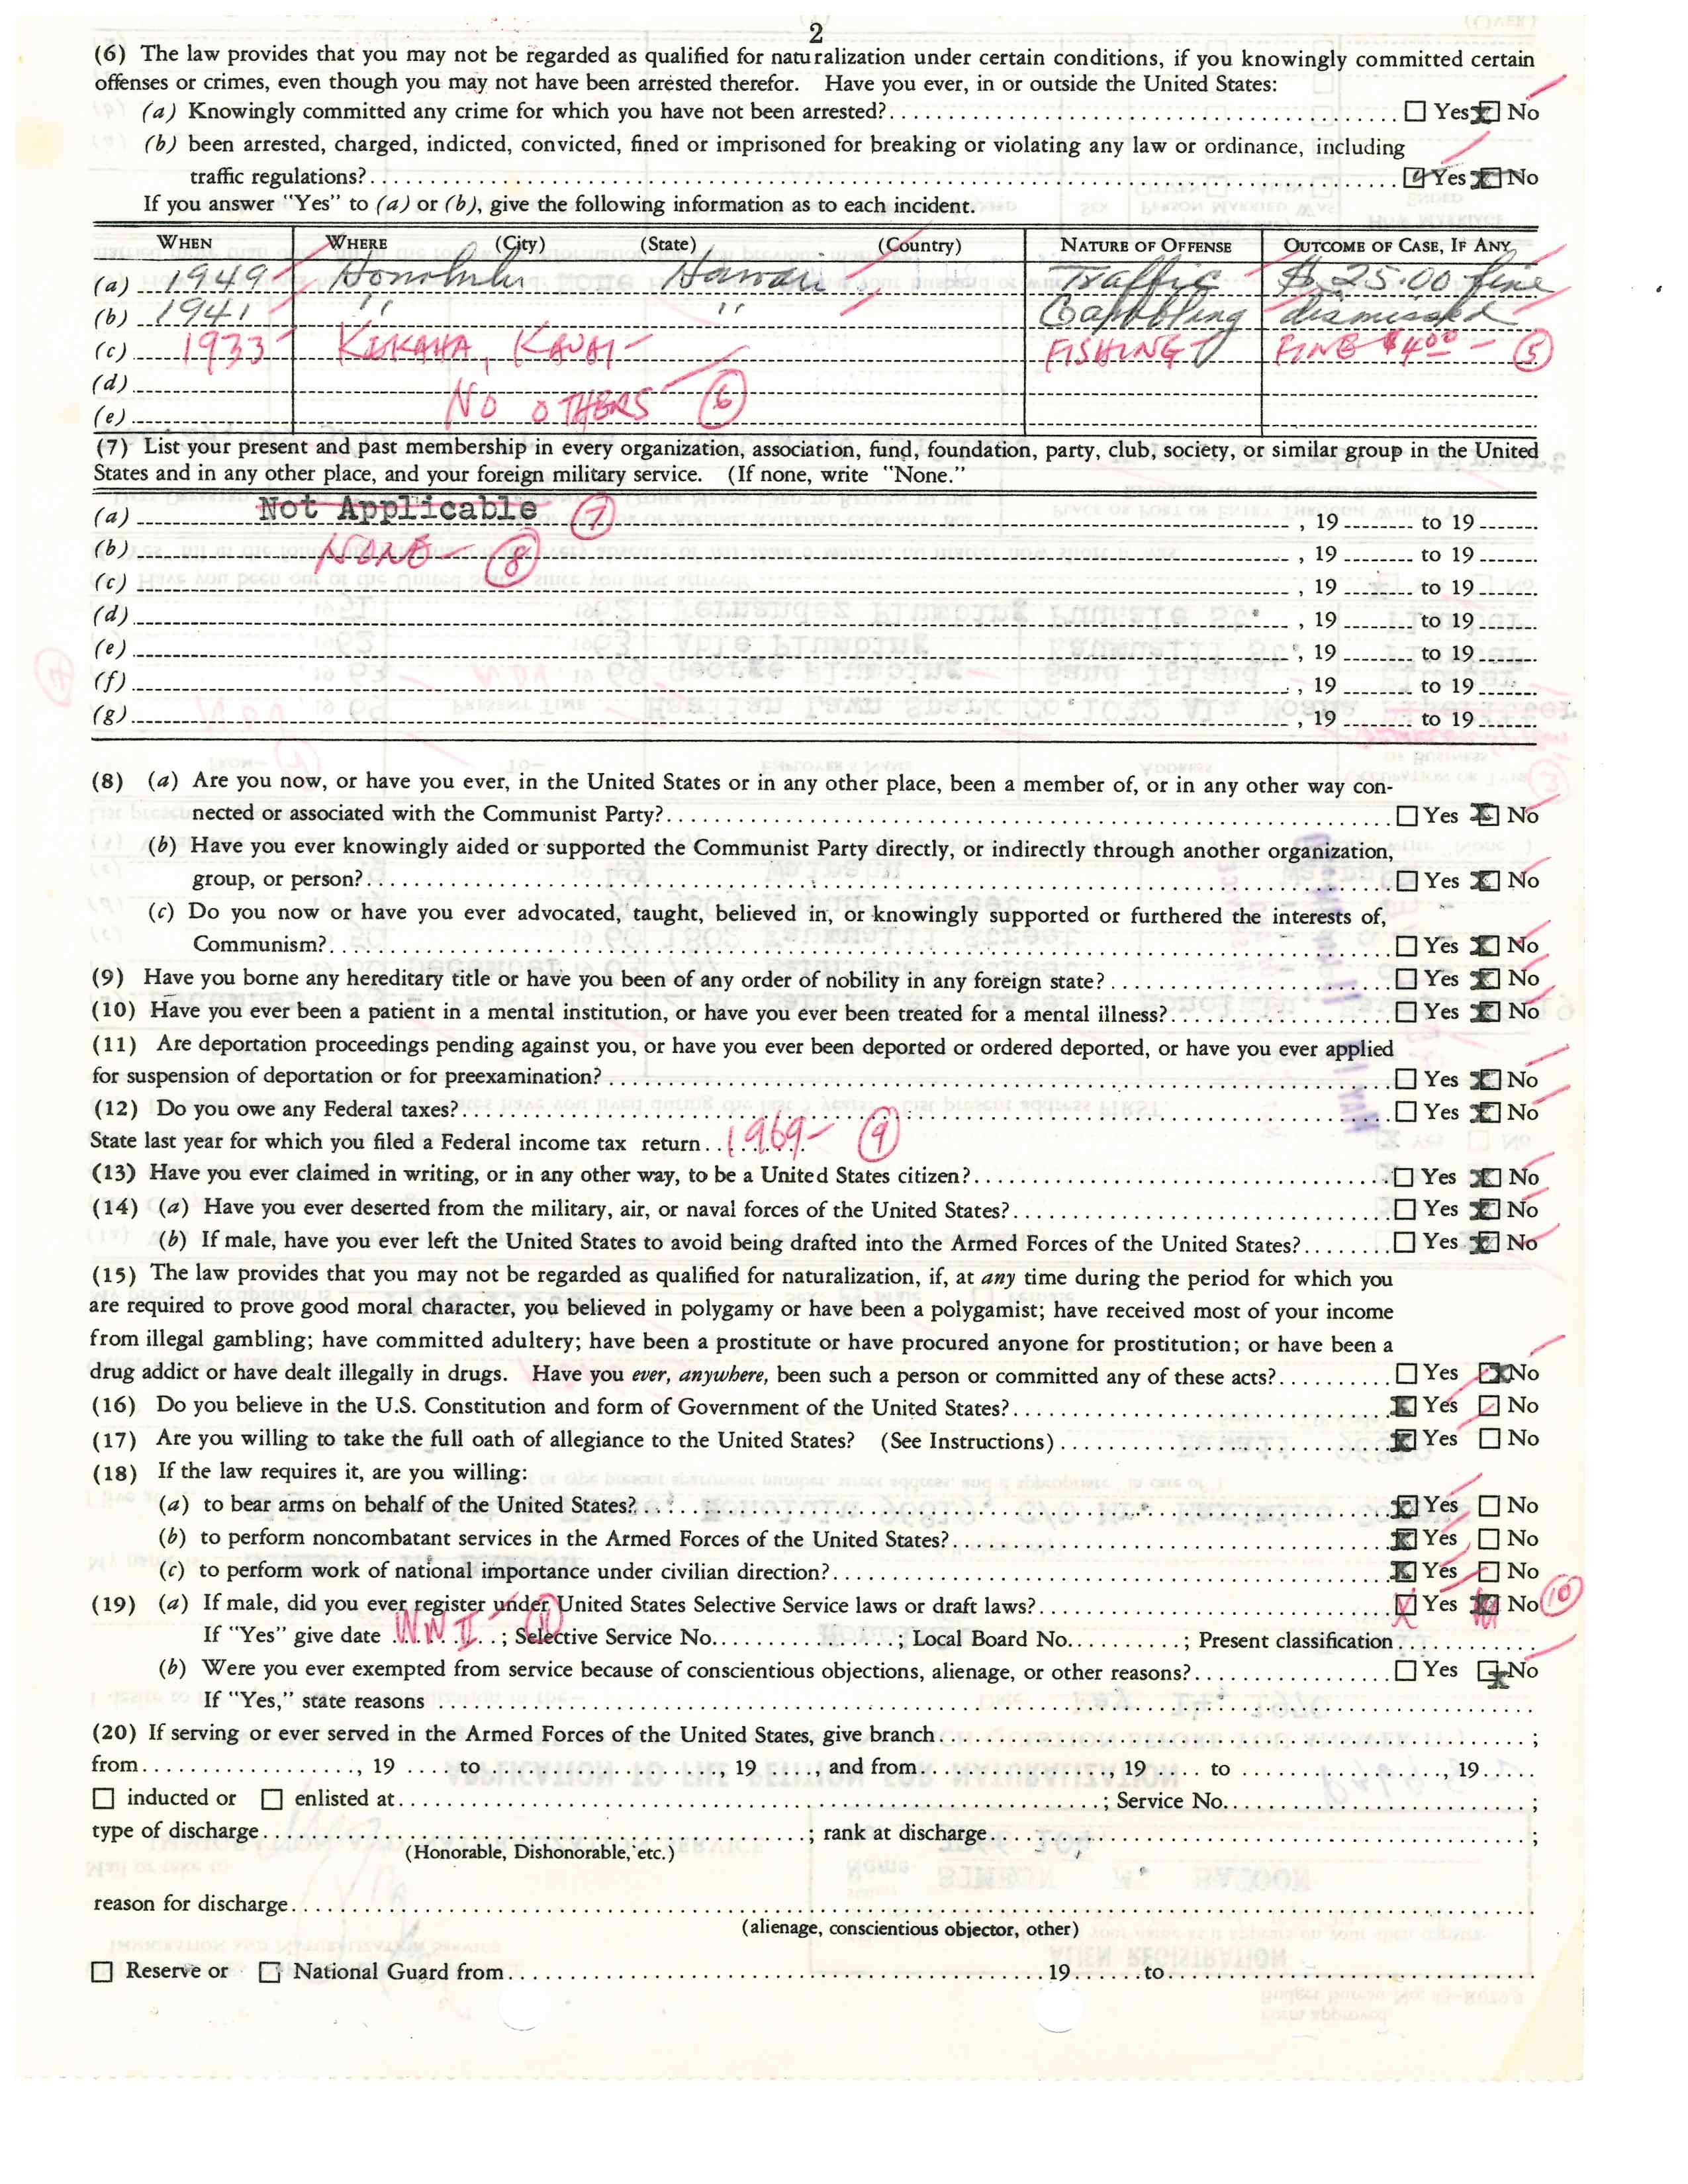 2
(6) The law provides that you may not be regarded as qualified for naturalization under certain conditions, if you knowingly committed certain
offenses or crimes, even though you may not have been arrested therefor. Have you ever, in or outside the United States:
(a) Knowingly committed any crime for which you have not been arrested? ☐ Yes ☒ No
(b) been arrested, charged, indicted, convicted, fined or imprisoned for breaking or violating any law or ordinance, including
traffic regulations? ☑ Yes ☒ No
If you answer "Yes" to (a) or (b), give the following information as to each incident.
WHEN WHERE (City) (State) (Country) NATURE OF OFFENSE OUTCOME OF CASE, IF ANY
(a) 1949 Honolulu Hawaii Traffic $25.00 fine
(b) 1941 " " Gambling dismissed
(c) 1933 KEKAHA, KAUAI FISHING FINE $4.00 (5)
(d)
NO OTHERS (6)
(e)
(7) List your present and past membership in every organization, association, fund, foundation, party, club, society, or similar group in the United
States and in any other place, and your foreign military service. (If none, write "None."
(a) Not Applicable (7) , 19 to 19
(b) NONE (8) , 19 to 19
(c) , 19 to 19
(d) , 19 to 19
(e) , 19 to 19
(f) , 19 to 19
(g) , 19 to 19
(8) (a) Are you now, or have you ever, in the United States or in any other place, been a member of, or in any other way con-
nected or associated with the Communist Party? ☐ Yes ☒ No
(b) Have you ever knowingly aided or supported the Communist Party directly, or indirectly through another organization,
group, or person? ☐ Yes ☒ No
(c) Do you now or have you ever advocated, taught, believed in, or knowingly supported or furthered the interests of,
Communism? ☐ Yes ☒ No
(9) Have you borne any hereditary title or have you been of any order of nobility in any foreign state? ☐ Yes ☒ No
(10) Have you ever been a patient in a mental institution, or have you ever been treated for a mental illness? ☐ Yes ☒ No
(11) Are deportation proceedings pending against you, or have you ever been deported or ordered deported, or have you ever applied
for suspension of deportation or for preexamination? ☐ Yes ☒ No
(12) Do you owe any Federal taxes? ☐ Yes ☒ No
State last year for which you filed a Federal income tax return 1969 (9)
(13) Have you ever claimed in writing, or in any other way, to be a United States citizen? ☐ Yes ☒ No
(14) (a) Have you ever deserted from the military, air, or naval forces of the United States? ☐ Yes ☒ No
(b) If male, have you ever left the United States to avoid being drafted into the Armed Forces of the United States? ☐ Yes ☒ No
(15) The law provides that you may not be regarded as qualified for naturalization, if, at any time during the period for which you
are required to prove good moral character, you believed in polygamy or have been a polygamist; have received most of your income
from illegal gambling; have committed adultery; have been a prostitute or have procured anyone for prostitution; or have been a
drug addict or have dealt illegally in drugs. Have you ever, anywhere, been such a person or committed any of these acts? ☐ Yes ☒ No
(16) Do you believe in the U.S. Constitution and form of Government of the United States? ☒ Yes ☐ No
(17) Are you willing to take the full oath of allegiance to the United States? (See Instructions) ☒ Yes ☐ No
(18) If the law requires it, are you willing:
(a) to bear arms on behalf of the United States? ☒ Yes ☐ No
(b) to perform noncombatant services in the Armed Forces of the United States? ☒ Yes ☐ No
(c) to perform work of national importance under civilian direction? ☒ Yes ☐ No
(19) (a) If male, did you ever register under United States Selective Service laws or draft laws? ☒ Yes ☒ No (10)
If "Yes" give date WW II (11); Selective Service No. ; Local Board No. ; Present classification
(b) Were you ever exempted from service because of conscientious objections, alienage, or other reasons? ☐ Yes ☒ No
If "Yes," state reasons
(20) If serving or ever served in the Armed Forces of the United States, give branch ;
from , 19 to , 19 , and from , 19 to , 19
☐ inducted or ☐ enlisted at ; Service No. ;
type of discharge ; rank at discharge ;
(Honorable, Dishonorable, etc.)
reason for discharge
(alienage, conscientious objector, other)
☐ Reserve or ☐ National Guard from 19 to